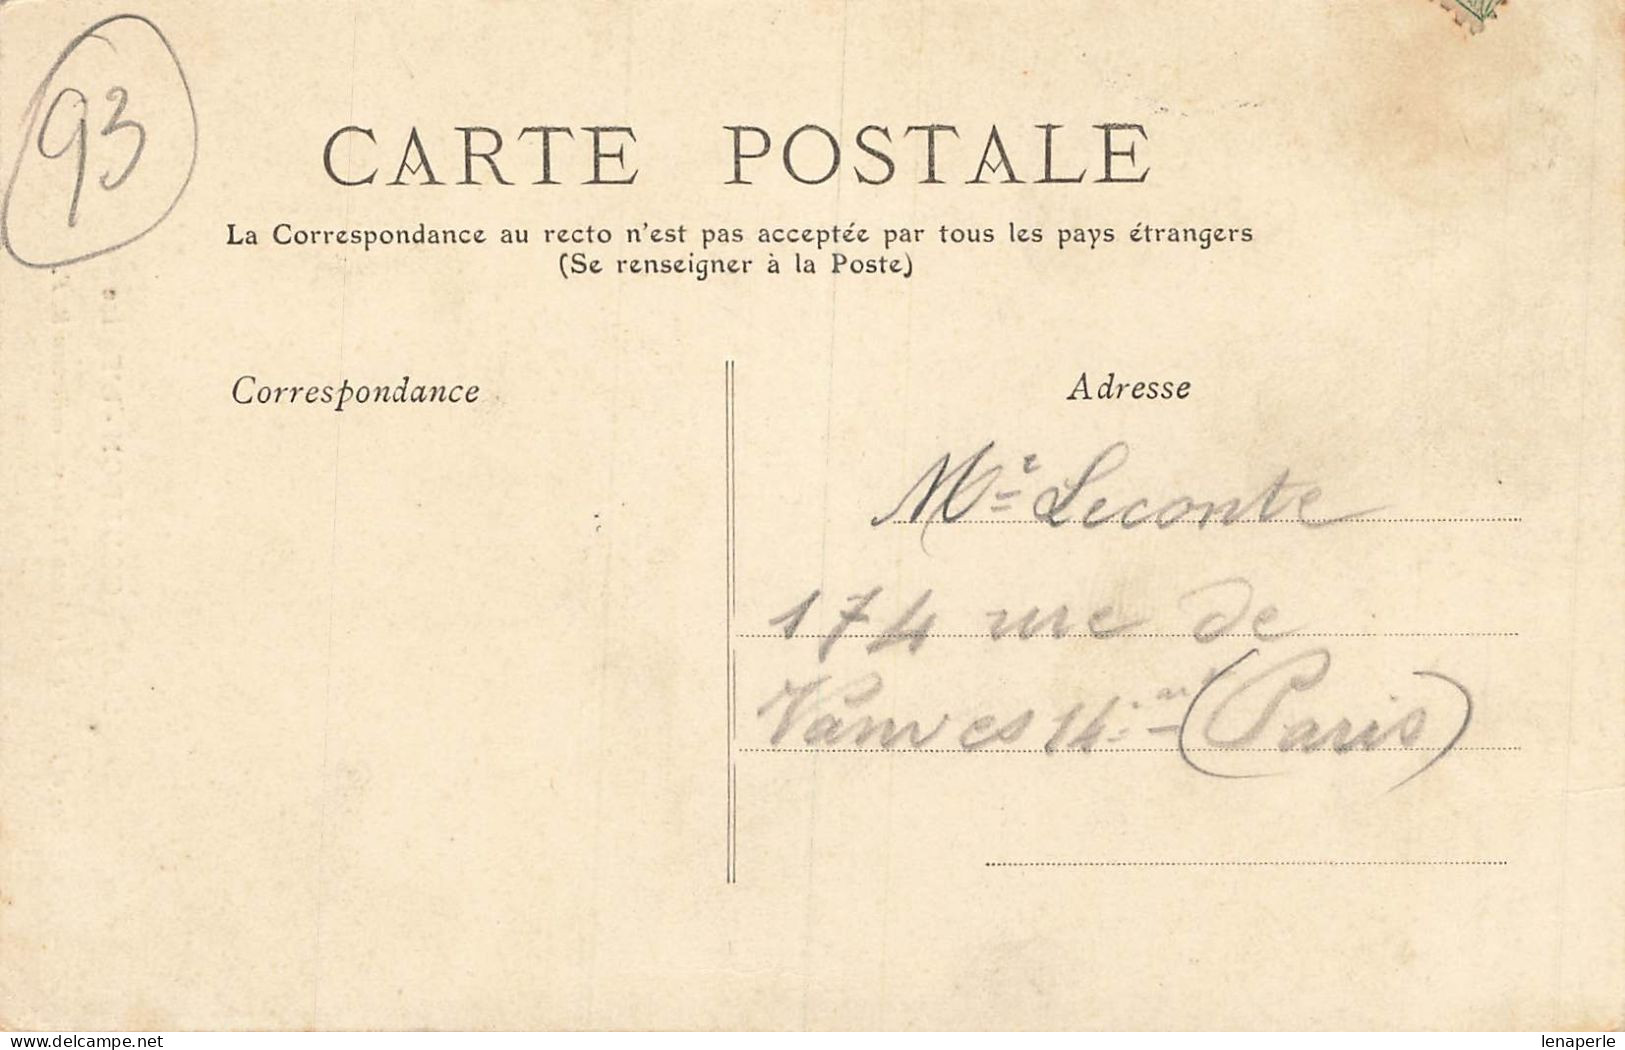 93
CARTE POSTALE
La Correspondance au recto n'est pas acceptée par tous les pays étrangers
(Se renseigner à la Poste)
Correspondance
Adresse
Mr Leconte
174 rue de
Vanves 14 (Paris)
delcampe.net
lenaperle